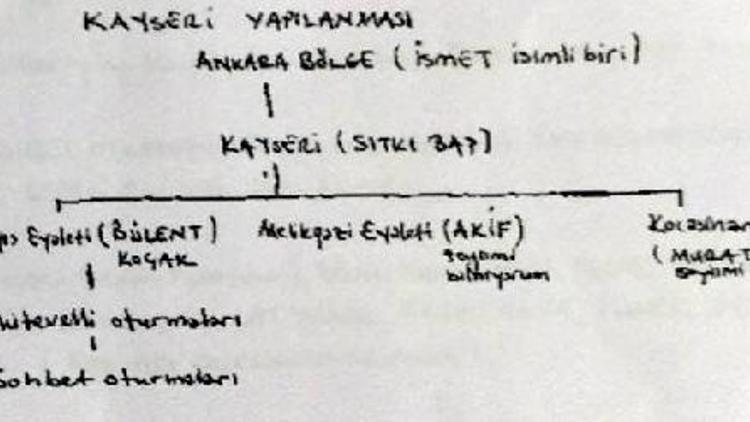 KAYSERİ YAPILANMASI
ANKARA BÖLGE (İSMET isimli biri)
KAYSERİ (SITKI BAŞ)
Eyaleti (BÜLENT) Melikgazi Eyaleti (AKİF) Kocasinan
KOÇAK soyismi (MURAT
bilmiyorum soyismi
Mütevelli oturmaları
Sohbet oturmaları